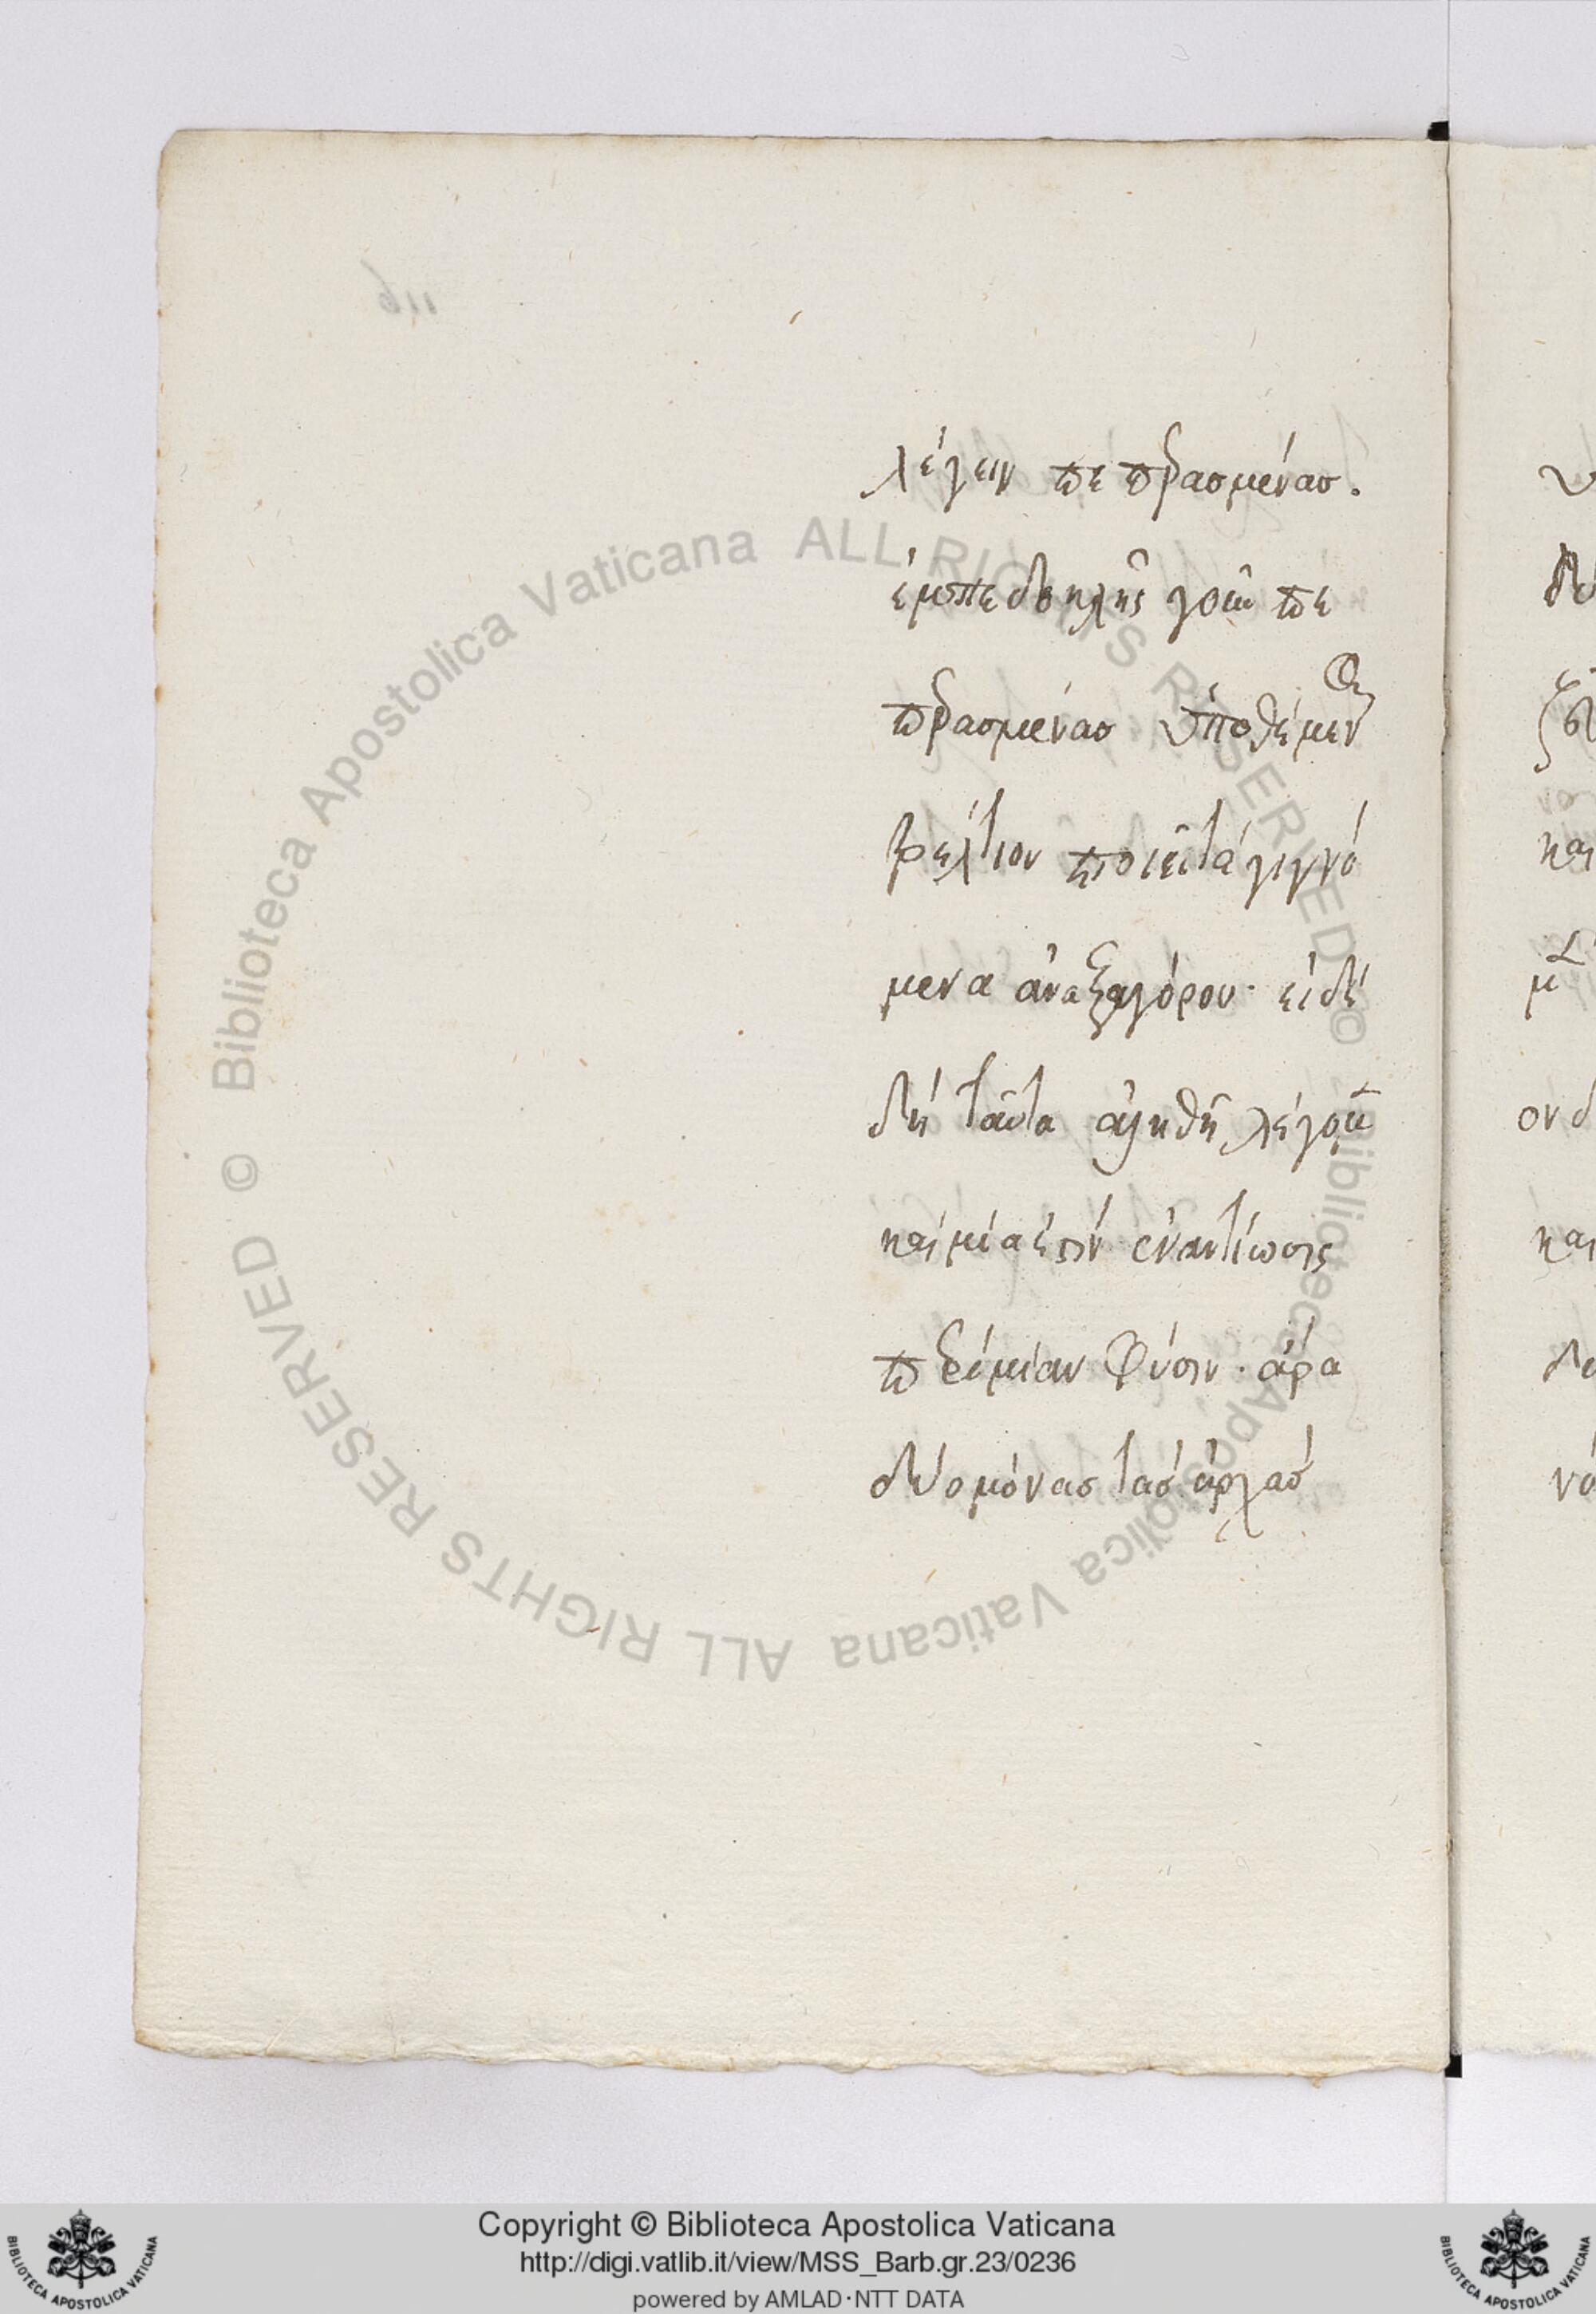 λέγειν πεπερασμένασ.
ἐμπεδοκλῆς γοῦν πε
περασμένασ ὑποθέμεν
βέλτιον ποιεῖ τὰ γιγνό
μενα ἀναξαγόρου· εἰ δὲ
δὴ ταῦτα ἀληθῆ λέγου
καὶ μία ἐστὶν ἐναντίωσις
περὶ μίαν φύσιν· ἄρα
δύο μόνασ τὰσ ἀρχὰσ
Copyright © Biblioteca Apostolica Vaticana
http://digi.vatlib.it/view/MSS_Barb.gr.23/0236
powered by AMLAD·NTT DATA
© Biblioteca Apostolica Vaticana ALL RIGHTS RESERVED © Biblioteca Apostolica Vaticana ALL RIGHTS RESERVED
BIBLIOTECA APOSTOLICA VATICANA
BIBLIOTECA APOSTOLICA VATICANA